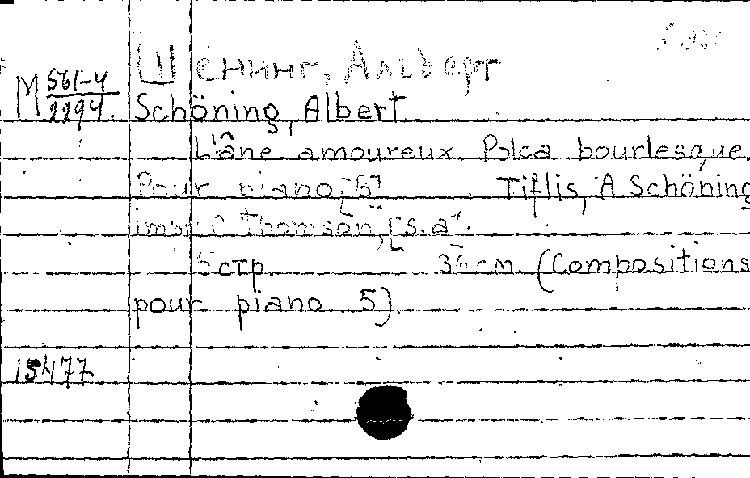 Шенинг, Альберт
М 561-4
2294.
Schöning, Albert
L'âne amoureux. Polca bourlesque.
Pour piano, [5] Tiflis, A Schöning
impr. C Thomson, [s.a].
5 стр 35 см (Compositions
pour piano 5)
15477